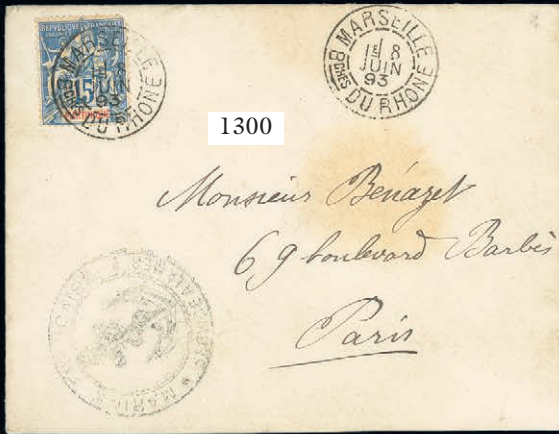 RÉPUBLIQUE FRANÇAISE
15
MARSEILLE
1E 8
JUIN
93
BCHES DU RHONE
MARSEILLE
1E 8
JUIN
93
BCHES DU RHONE
1300
Monsieur Benazet
69 boulevard Barbès
Paris
MARINE